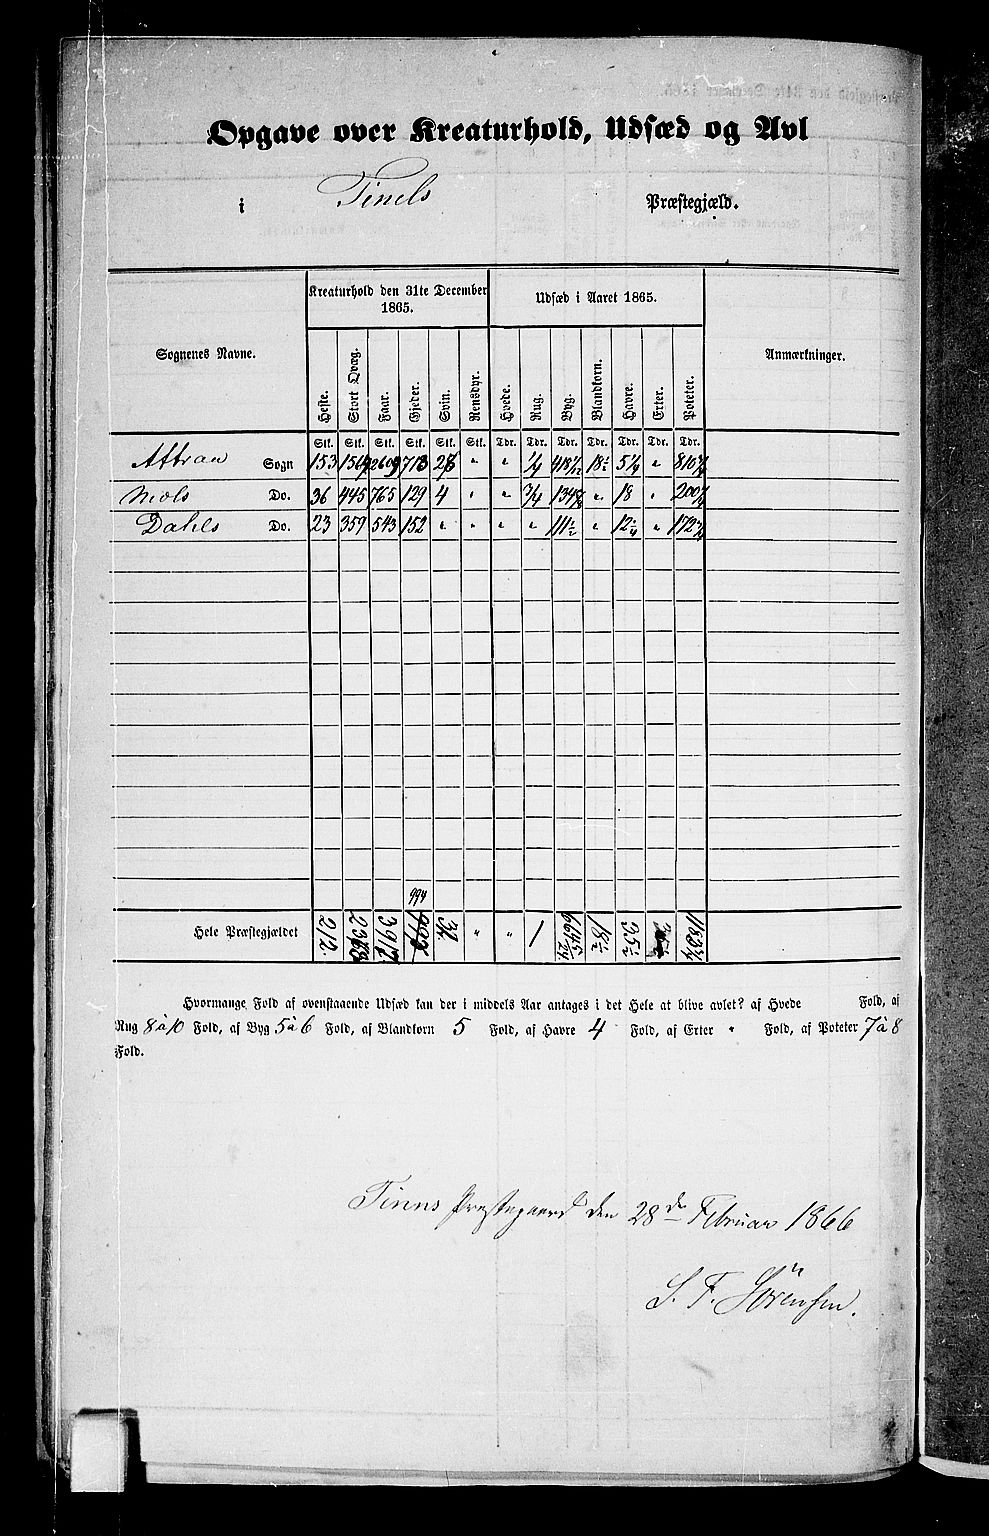 Opgave over Kreaturhold, Udsæd og Avl
i Tinds Præstegjæld.
Sognenes Navne. Kreaturhold den 31te December 1865. Udsæd i Aaret 1865. Anmærkninger.
Heste. Stort Qvæg. Faar. Gjeder. Svin. Rensdyr. Hvede. Rug. Byg. Blandkorn. Havre. Erter. Poteter.
Stk. Stk. Stk. Stk. Stk. Stk. Tdr. Tdr. Tdr. Tdr. Tdr. Tdr. Tdr.
Attraa Sogn 153 2609 713 " " 1/4 18½ 5¼ "
Mæls Do. 36 445 765 129 4 " " 3/4 " 18 "
Dahls Do. 23 359 543 152 " " " " 111½ " 12¾ "
994
Hele Præstegjældet 212 3917 " " 1 18½ 35½
Hvormange Fold af ovenstaaende Udsæd kan der i middels Aar antages i det Hele at blive avlet? af Hvede Fold, af
Rug 8 à 10 Fold, af Byg 5 à 6 Fold, af Blandkorn 5 Fold, af Havre 4 Fold, af Erter " Fold, af Poteter 7 à 8
Fold.
Tinns Præstegaard den 28de Februar 1866
S. F. Sörensen.